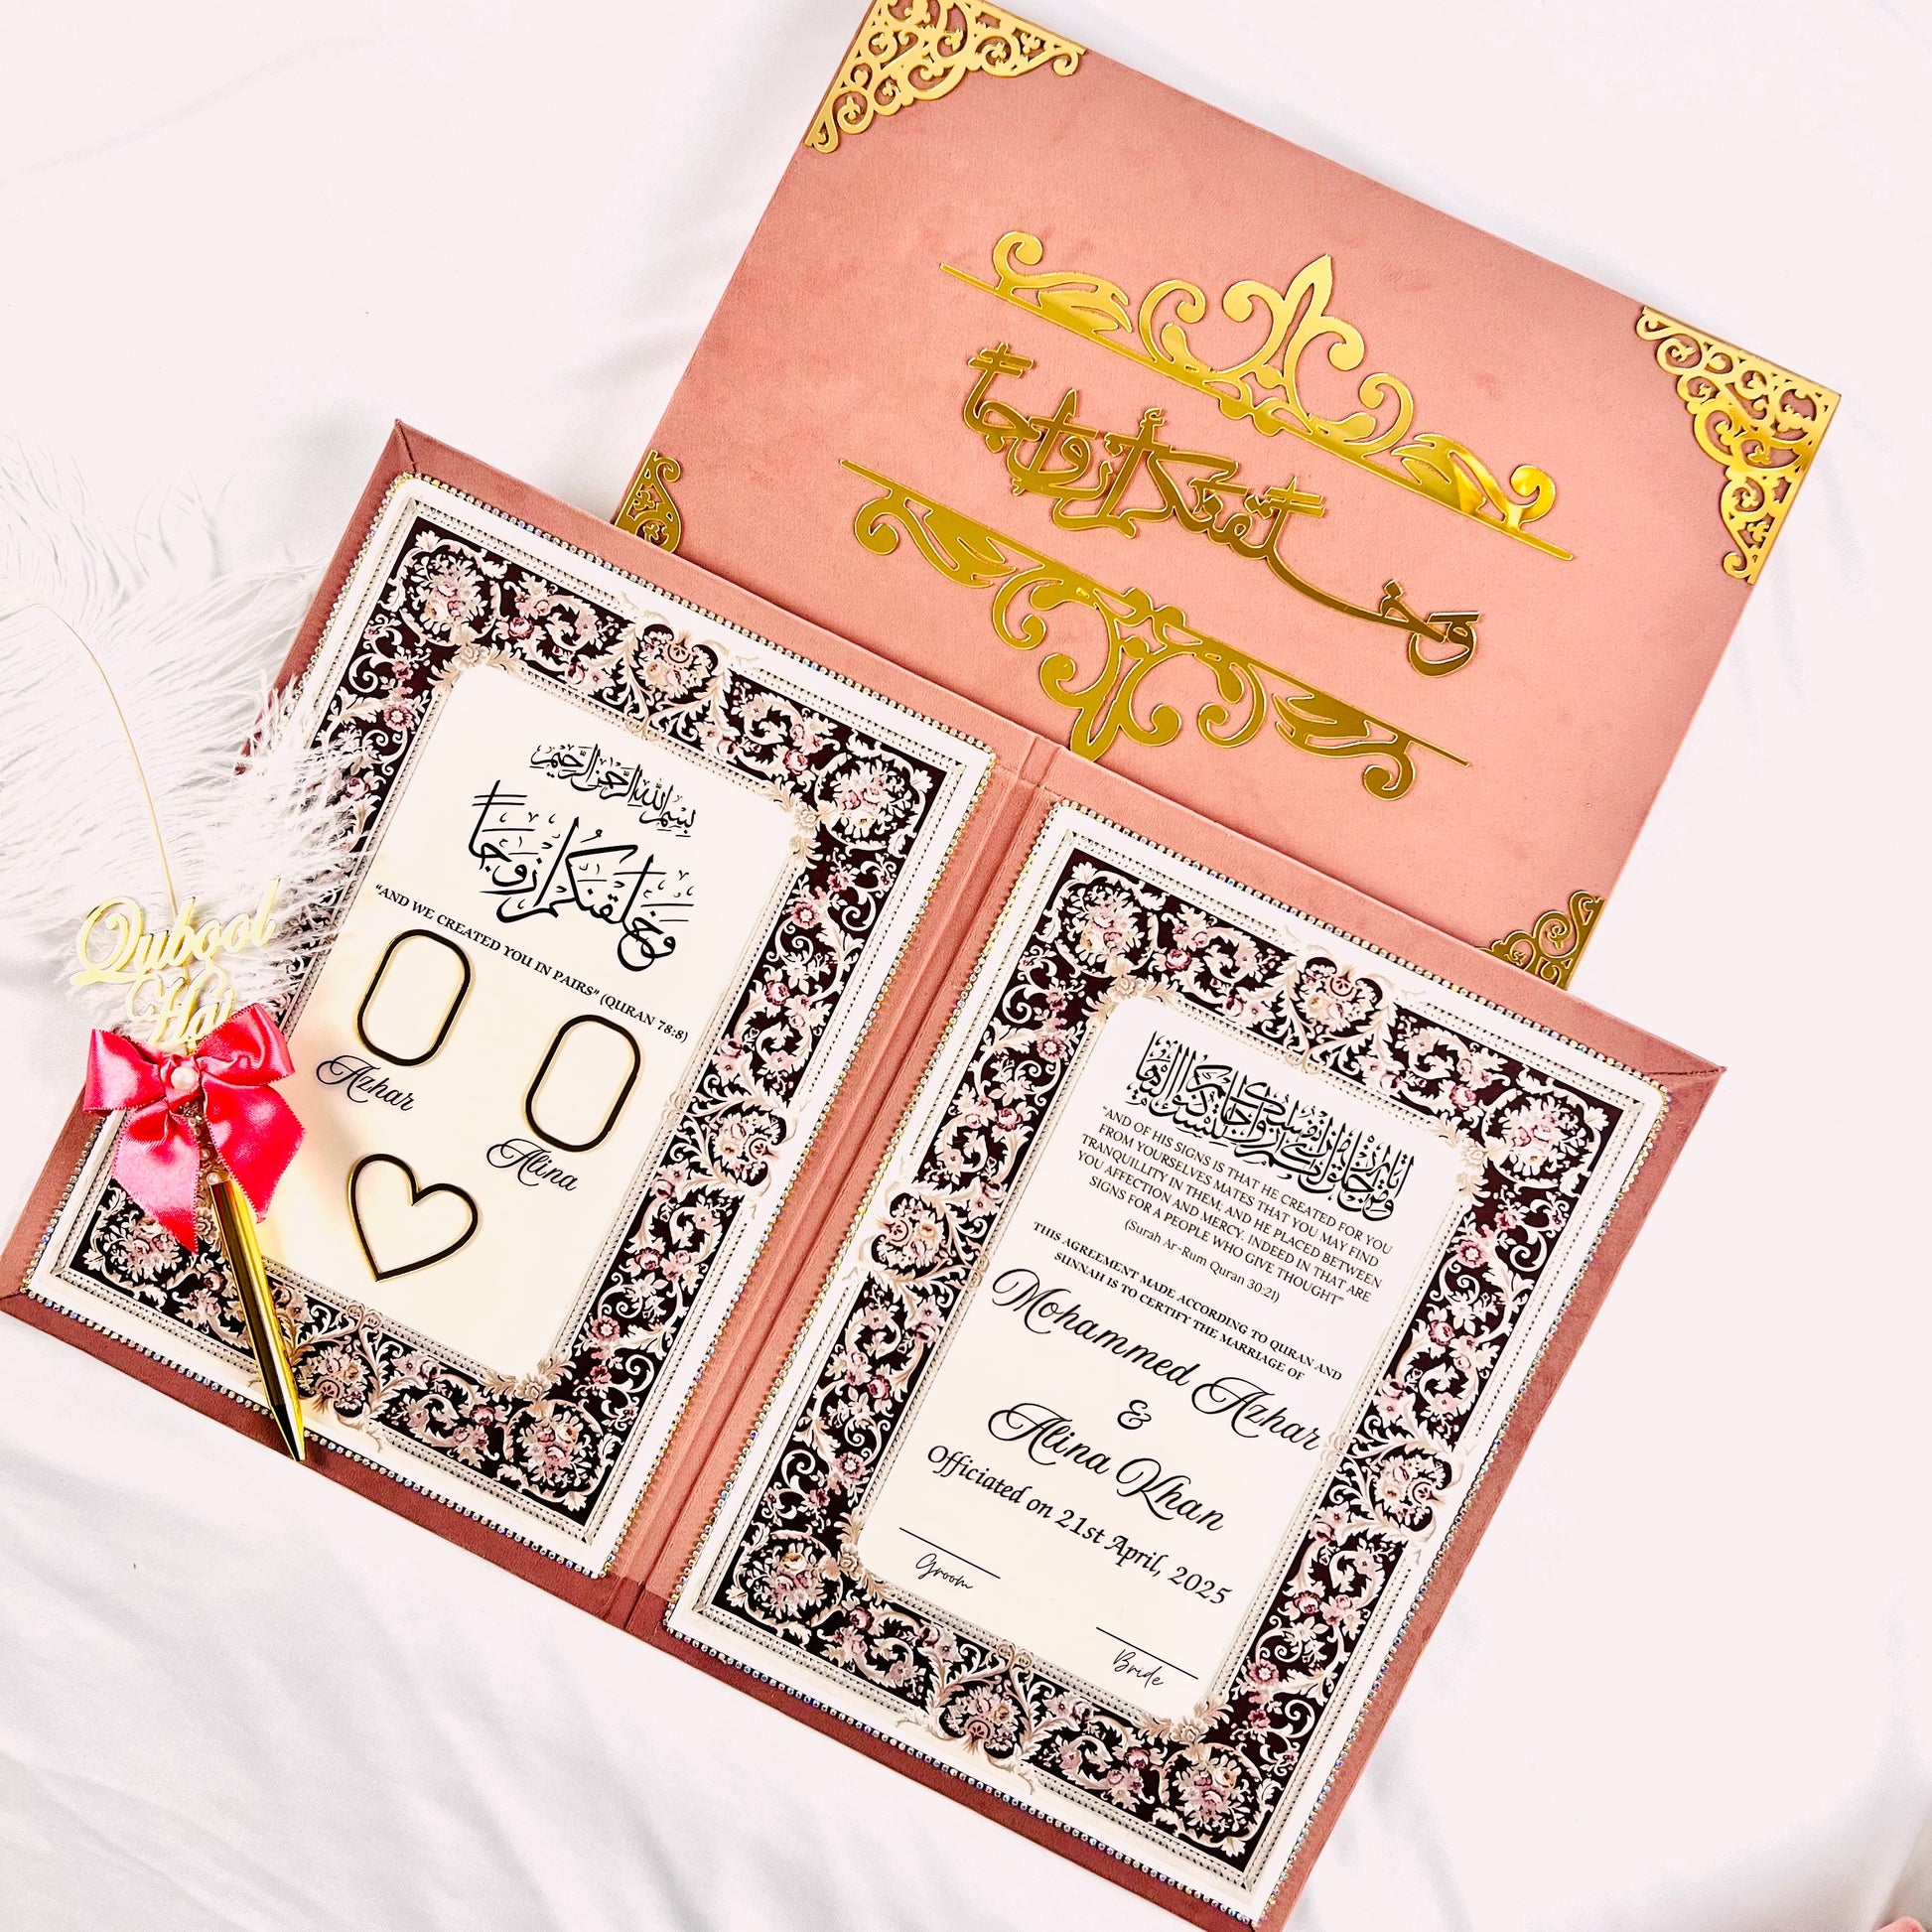 وخلقنكم أزواجا
بِسْمِ اللَّهِ الرَّحْمَٰنِ الرَّحِيمِ
وخلقنكم أزوجا
"AND WE CREATED YOU IN PAIRS" (QURAN 78:8)
Azhar
Alina
Qubool
Hai
"AND OF HIS SIGNS IS THAT HE CREATED FOR YOU
FROM YOURSELVES MATES THAT YOU MAY FIND
TRANQUILLITY IN THEM; AND HE PLACED BETWEEN
YOU AFFECTION AND MERCY. INDEED IN THAT ARE
SIGNS FOR A PEOPLE WHO GIVE THOUGHT"
(Surah Ar-Rum Quran 30:21)
THIS AGREEMENT MADE ACCORDING TO QURAN AND
SUNNAH IS TO CERTIFY THE MARRIAGE OF
Mohammed Azhar
&
Alina Khan
Officiated on 21st April, 2025
Groom
Bride